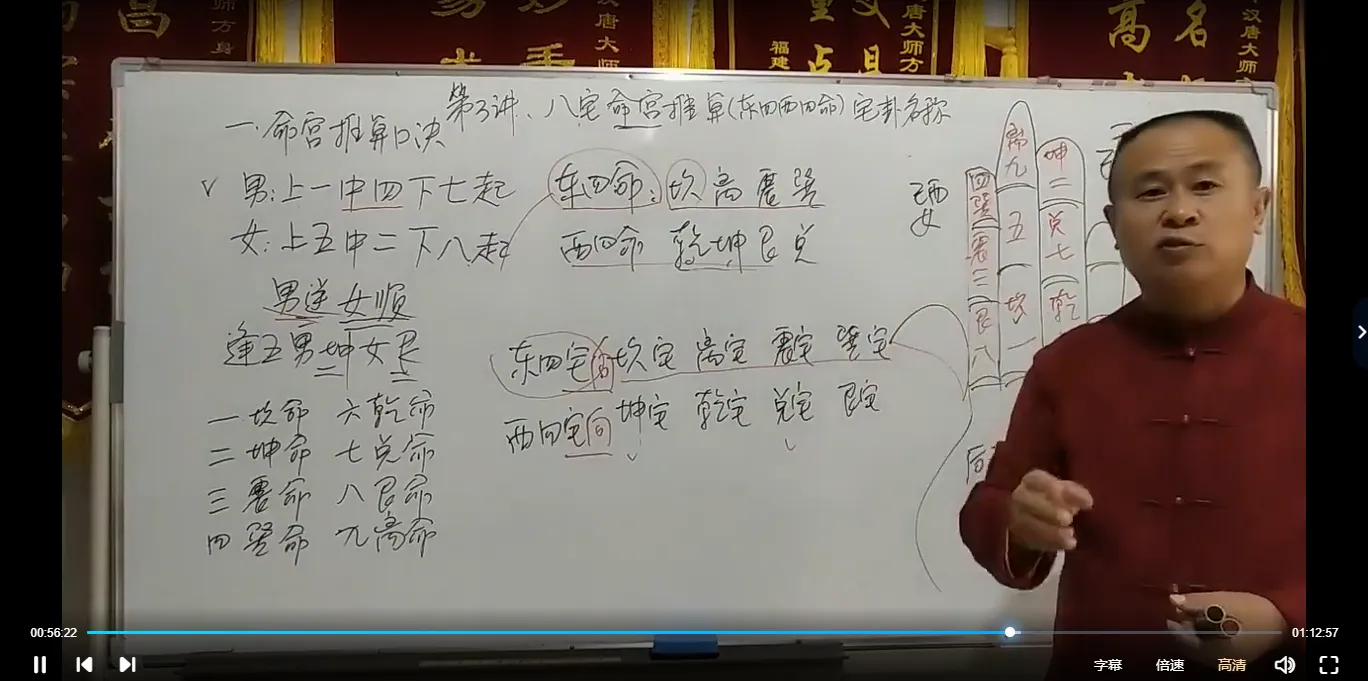 第3讲、八宅命宫推算(东四西四命)宅卦名称
一.命宫推算口决
男:上一中四下七起
女:上五中二下八起
男逆女顺
逢五男坤女艮
二
一坎命 六乾命
二坤命 七兑命
三震命 八艮命
四巽命 九离命
东四命:坎离震巽
西四命 乾坤艮兑
东四宅 坎宅 离宅 震宅 巽宅
西四宅向 坤宅 乾宅 兑宅 艮宅
女
四巽
震三
艮八
离九
五
坎一
坤二
兑七
乾
高
名
汉唐大师方
福建
00:56:22
01:12:57
字幕
倍速
高清